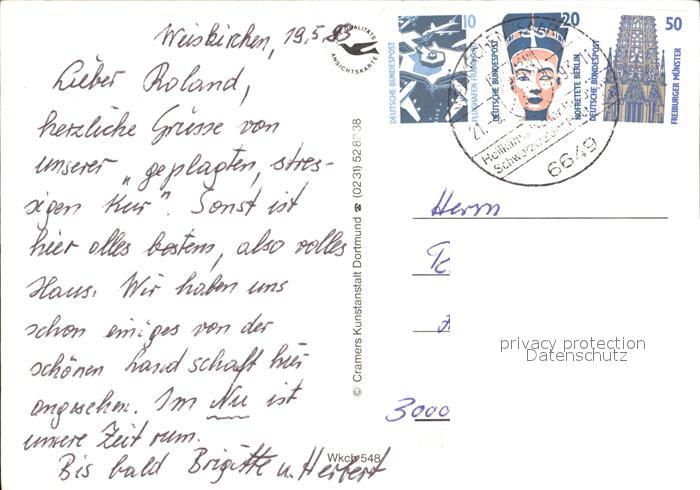 Weiskirchen, 19.5.93
Lieber Roland,
herzliche Grüsse von
unserer "geplagten, stres-
sigen Kur". Sonst ist
hier alles bestens, also volles
Haus. Wir haben uns
schon einiges von der
schönen Landschaft hier
angesehen. Im Nu ist
unsere Zeit rum.
Bis bald Brigitte u. Herbert
QUALITÄTS
ANSICHTSKARTE
© Cramers Kunstanstalt Dortmund ☎ (0231)
Wkch 548
10
DEUTSCHE BUNDESPOST
FLUGHAFEN FRANKFURT
20
DEUTSCHE BUNDESPOST
NOFRETETE BERLIN
50
DEUTSCHE BUNDESPOST
FREIBURGER MÜNSTER
6649
Herrn
3000
privacy protection
Datenschutz